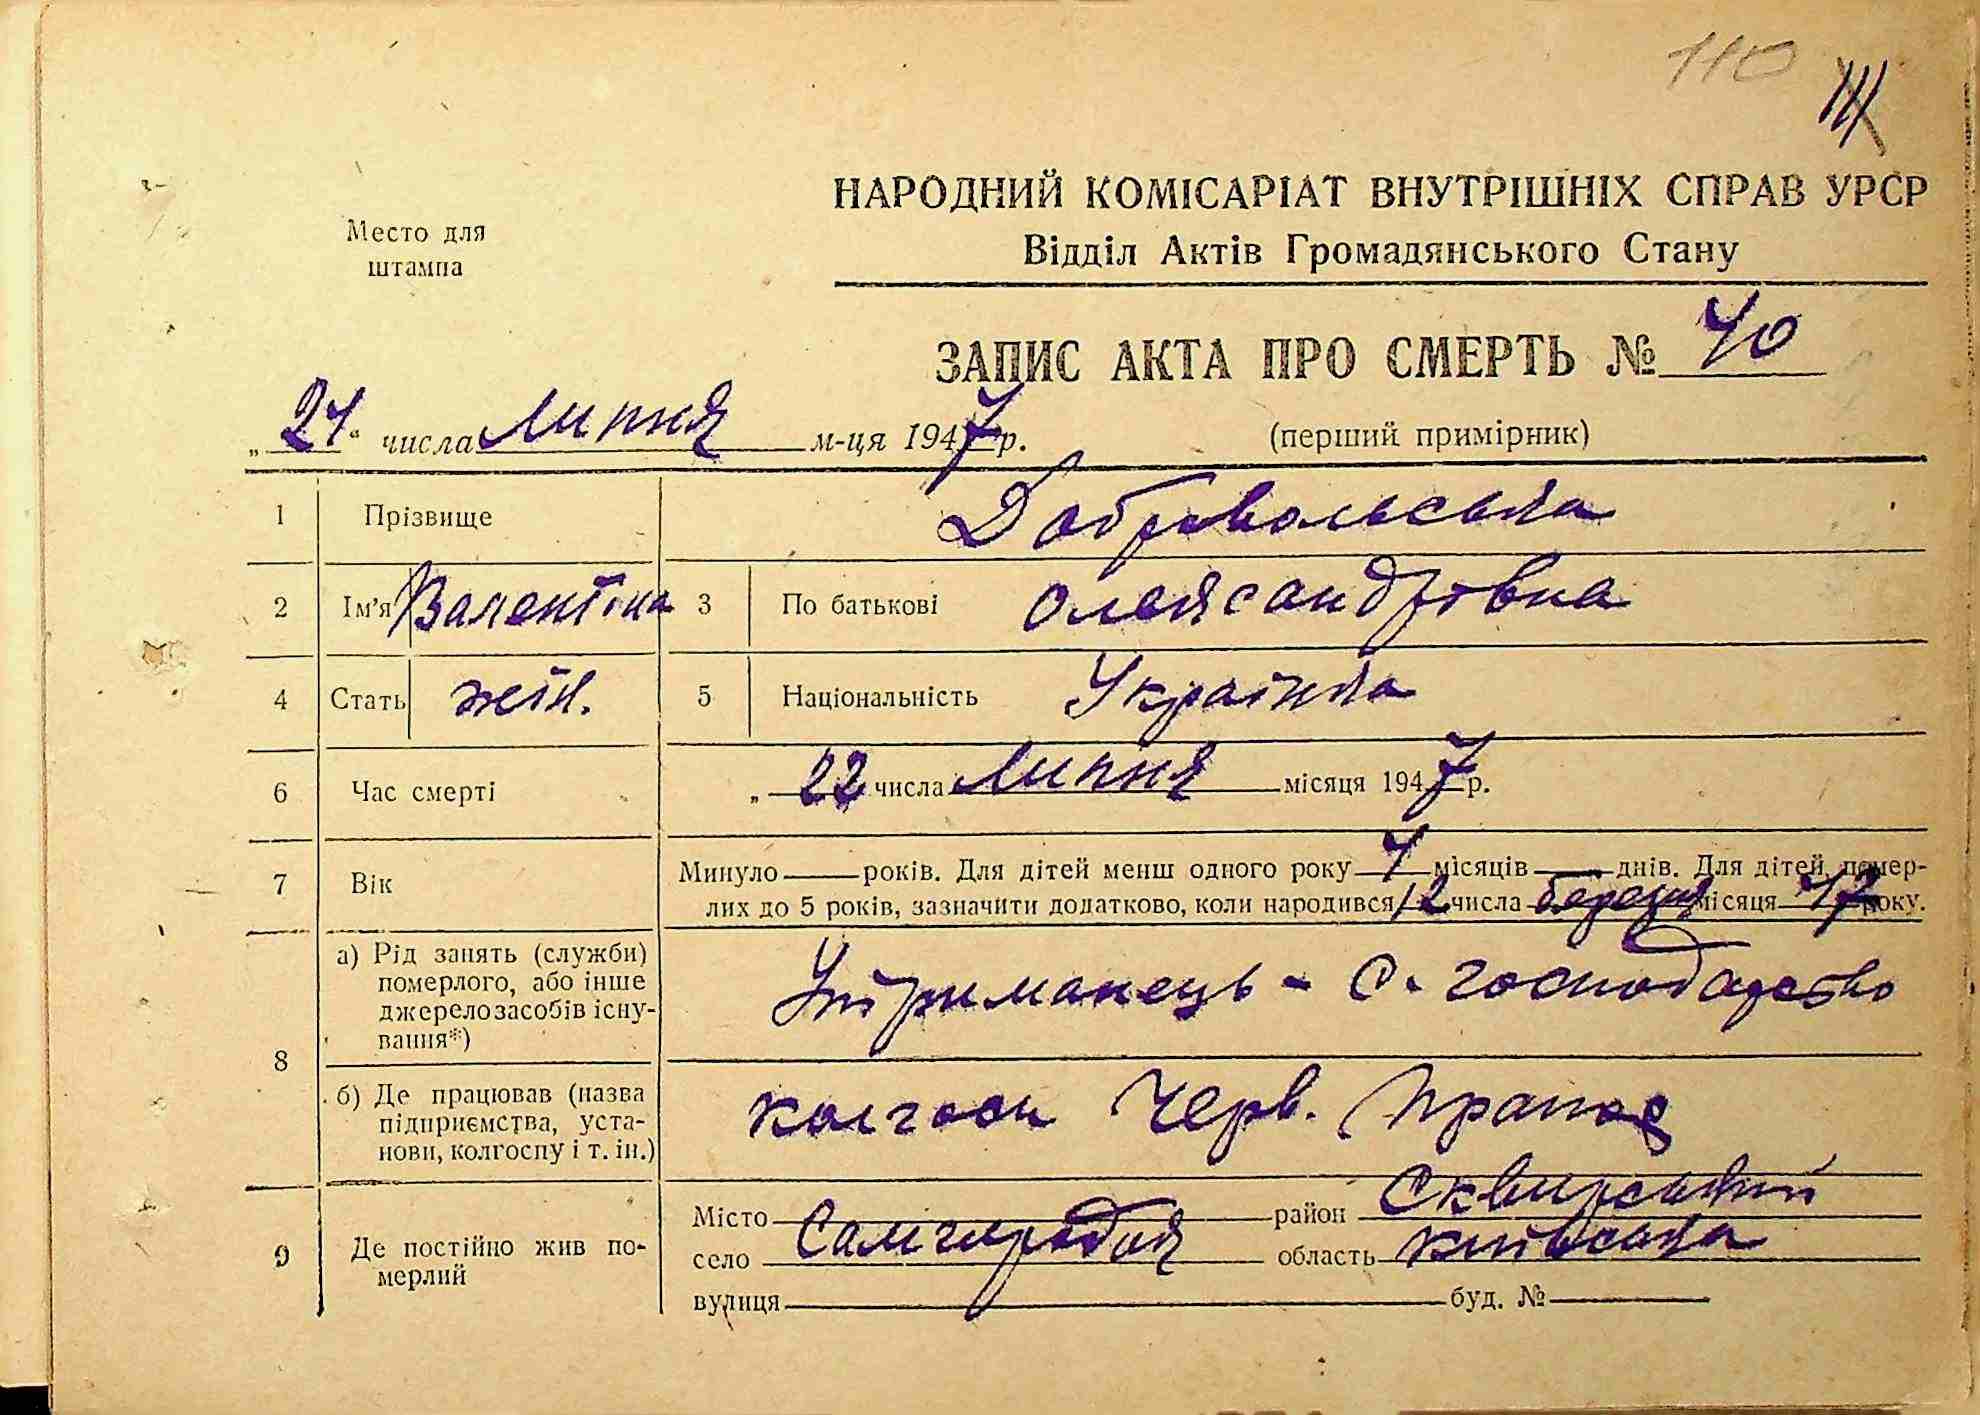 110
Место для
штампа
НАРОДНИЙ КОМІСАРІАТ ВНУТРІШНІХ СПРАВ УРСР
Відділ Актів Громадянського Стану
ЗАПИС АКТА ПРО СМЕРТЬ № 40
„24“ числа Липня м-ця 1947 р. (перший примірник)
1 Прізвище Добровольська
2 Ім'я Валентіна 3 По батькові Олександрівна
4 Стать жін. 5 Національність Українка
6 Час смерті „ 22 числа Липня місяця 1947 р.
7 Вік Минуло — років. Для дітей менш одного року 4 місяців — днів. Для дітей, помер-
лих до 5 років, зазначити додатково, коли народився 12 числа березня місяця 47 року.
8 а) Рід занять (служби)
померлого, або інше
джерело засобів існу-
вання*) Утриманець - с. господарство
б) Де працював (назва
підприємства, уста-
нови, колгоспу і т. ін.) колгосп Черв. Прапор
9 Де постійно жив по-
мерлий
Місто район Сквирський
село Самгородок область Київська
вулиця буд. №